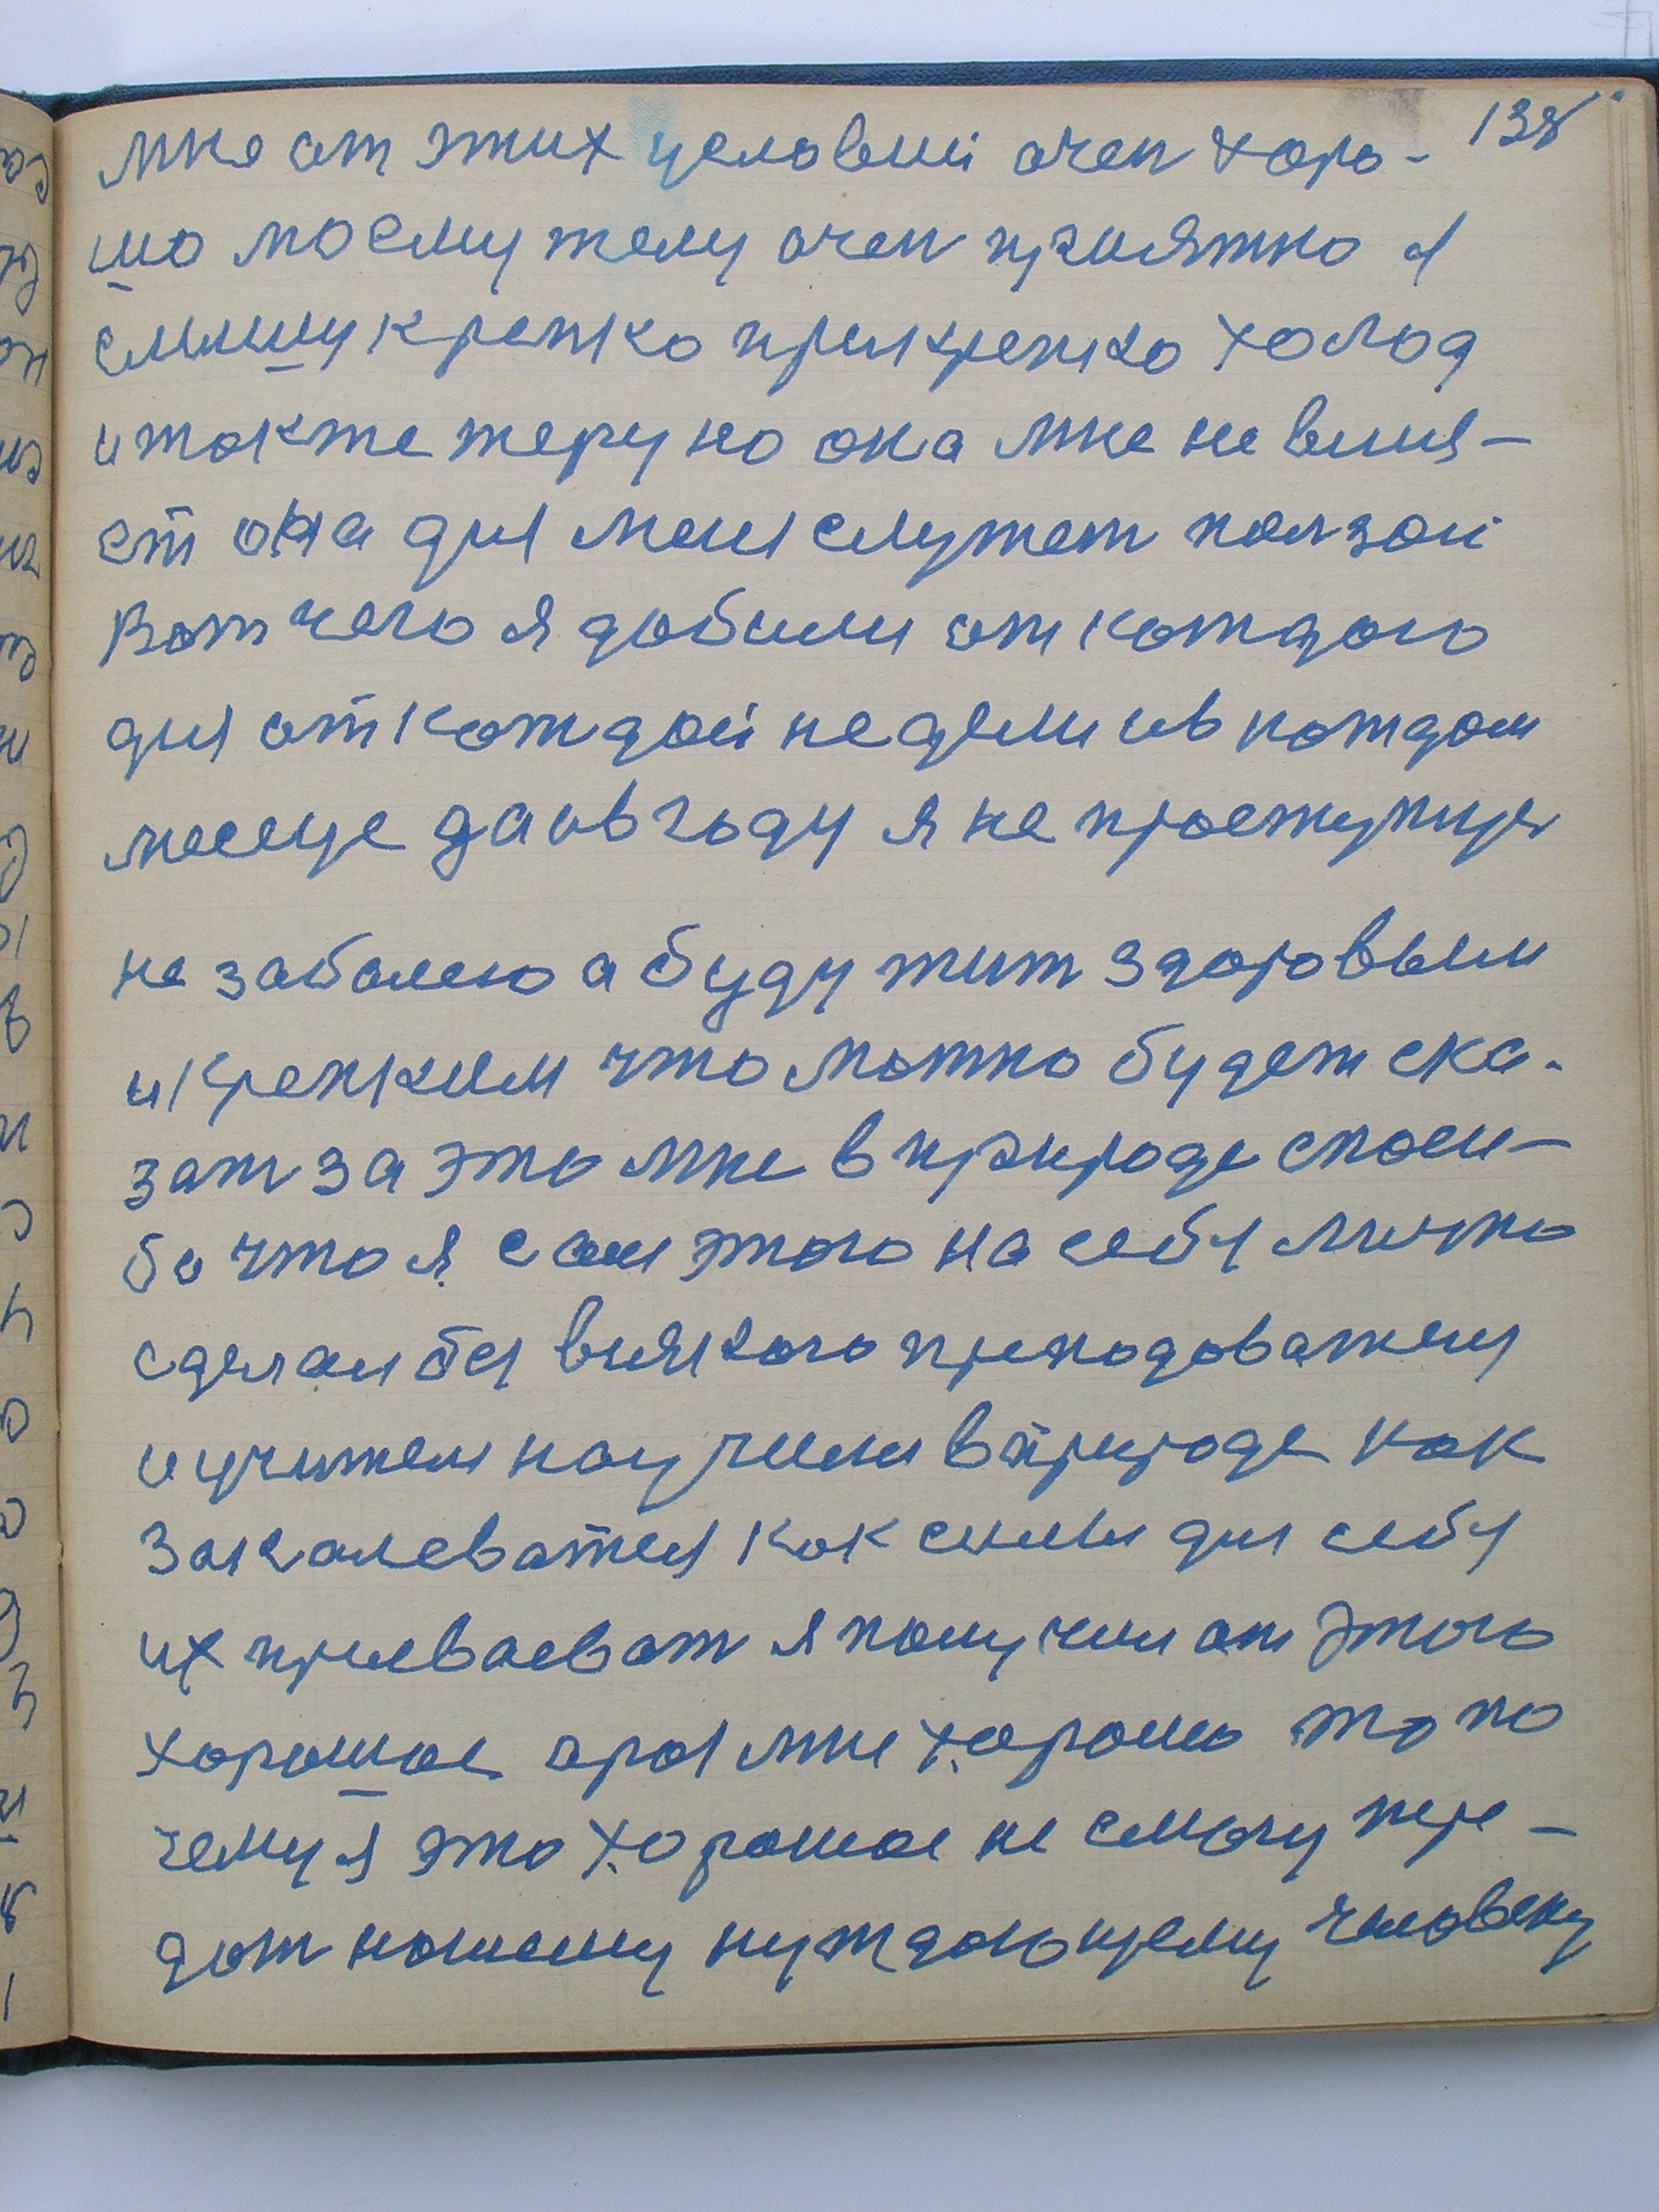 138
мне от этих условий очен хоро-
шо моему телу очен приятно я
слышу крепко прикрепко холод
и также жеру но она мне не влия-
ет она для меня служет ползой
Вот чего я добился от каждого
дня от каждой недели и в каждом
месеце да и в году я не простужус
не заболею а буду жит здоровым
и крепким что можно будет ска-
зат за это мне в природе спаси-
бо что я сам этого на себя лично
сделал без всякого преподователя
и учителя научился в природе как
закаливатся как силы для себя
их присваеват я получил от этого
хорошое а раз мне хорошо то по
чему я это хорошое не смогу пере-
дат нашему нуждающему человеку